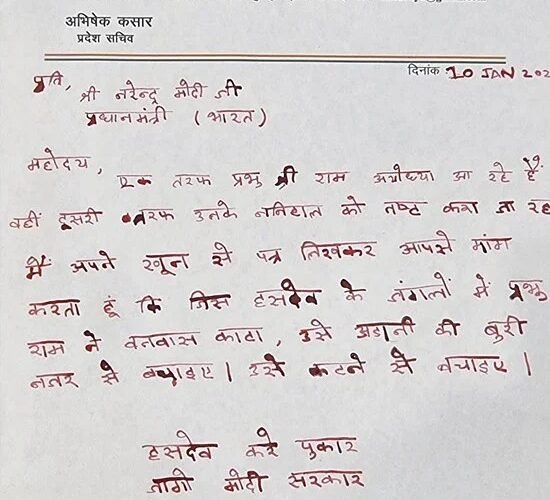 अभिषेक कसार
प्रदेश सचिव
दिनांक 10 JAN 202
प्रति,
श्री नरेन्द्र मोदी जी
प्रधानमंत्री (भारत)
महोदय,
एक तरफ प्रभु श्री राम अयोध्या आ रहे हैं
वहीं दूसरी तरफ उनके ननिहाल को नष्ट करा जा रह
मैं अपने खून से पत्र लिखकर आपसे मांग
करता हूं कि जिस हसदेव के जंगलों में प्रभु
राम ने वनवास काटा, उसे अडानी की बुरी
नजर से बचाइए। उसे कटने से बचाइए।
हसदेव करे पुकार
जागो मोदी सरकार